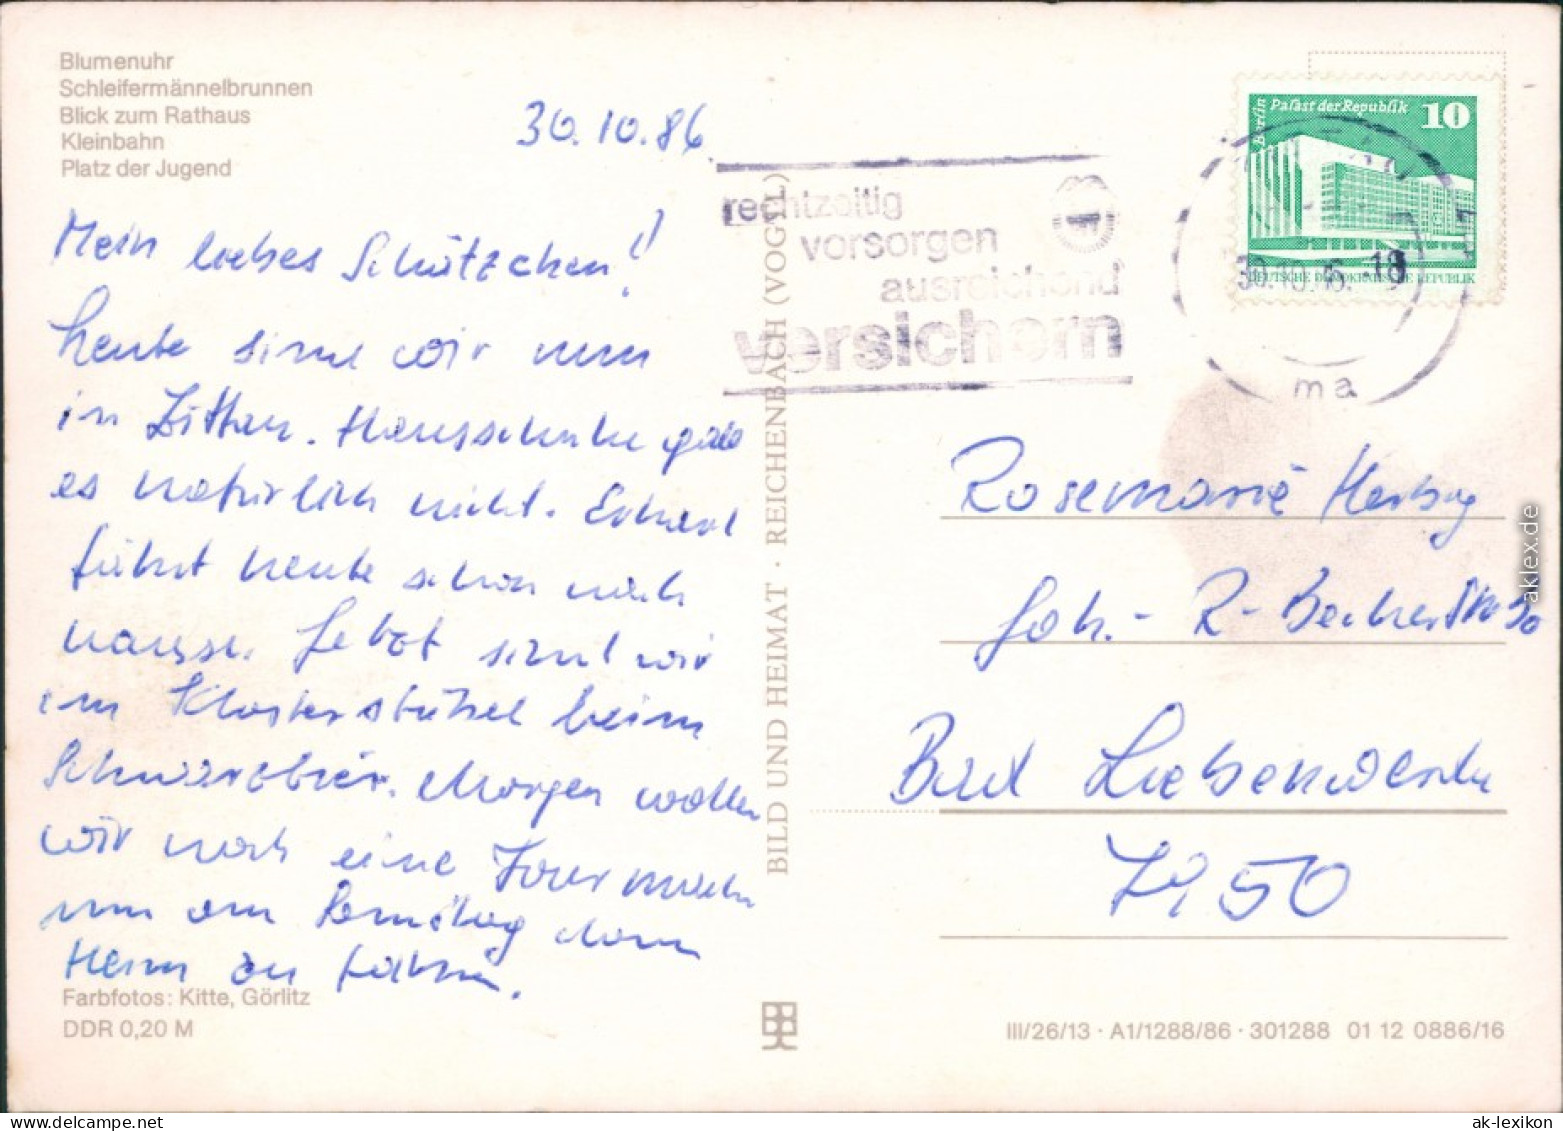 Blumenuhr
Schleifermännelbrunnen
Blick zum Rathaus
Kleinbahn
Platz der Jugend
30.10.86
Mein liebes Schätzchen!
Heute sind wir nun
in Zittau. Hausschuhe gab
es natürlich nicht. Eckard
fährt heute schon nach
hause. Jetzt sind wir
im Klosterstübel beim
Schwarzbier. Morgen wollen
wir noch eine Tour machen
um am Samstag dann
Heim zu fahren.
Farbfotos: Kitte, Görlitz
DDR 0,20 M
BILD UND HEIMAT · REICHENBACH (VOGTL)
rechtzeitig
vorsorgen
ausreichend
versichern
Berlin Palast der Republik 10
DEUTSCHE DEMOKRATISCHE REPUBLIK
30.10.86.-18
ma
Rosemarie
Joh.-R-Becherstr 30
Bad Liebenwerda
7950
III/26/13 · A1/1288/86 · 301288 01 12 0886/16
aklex.de
www.delcampe.net
ak-lexikon